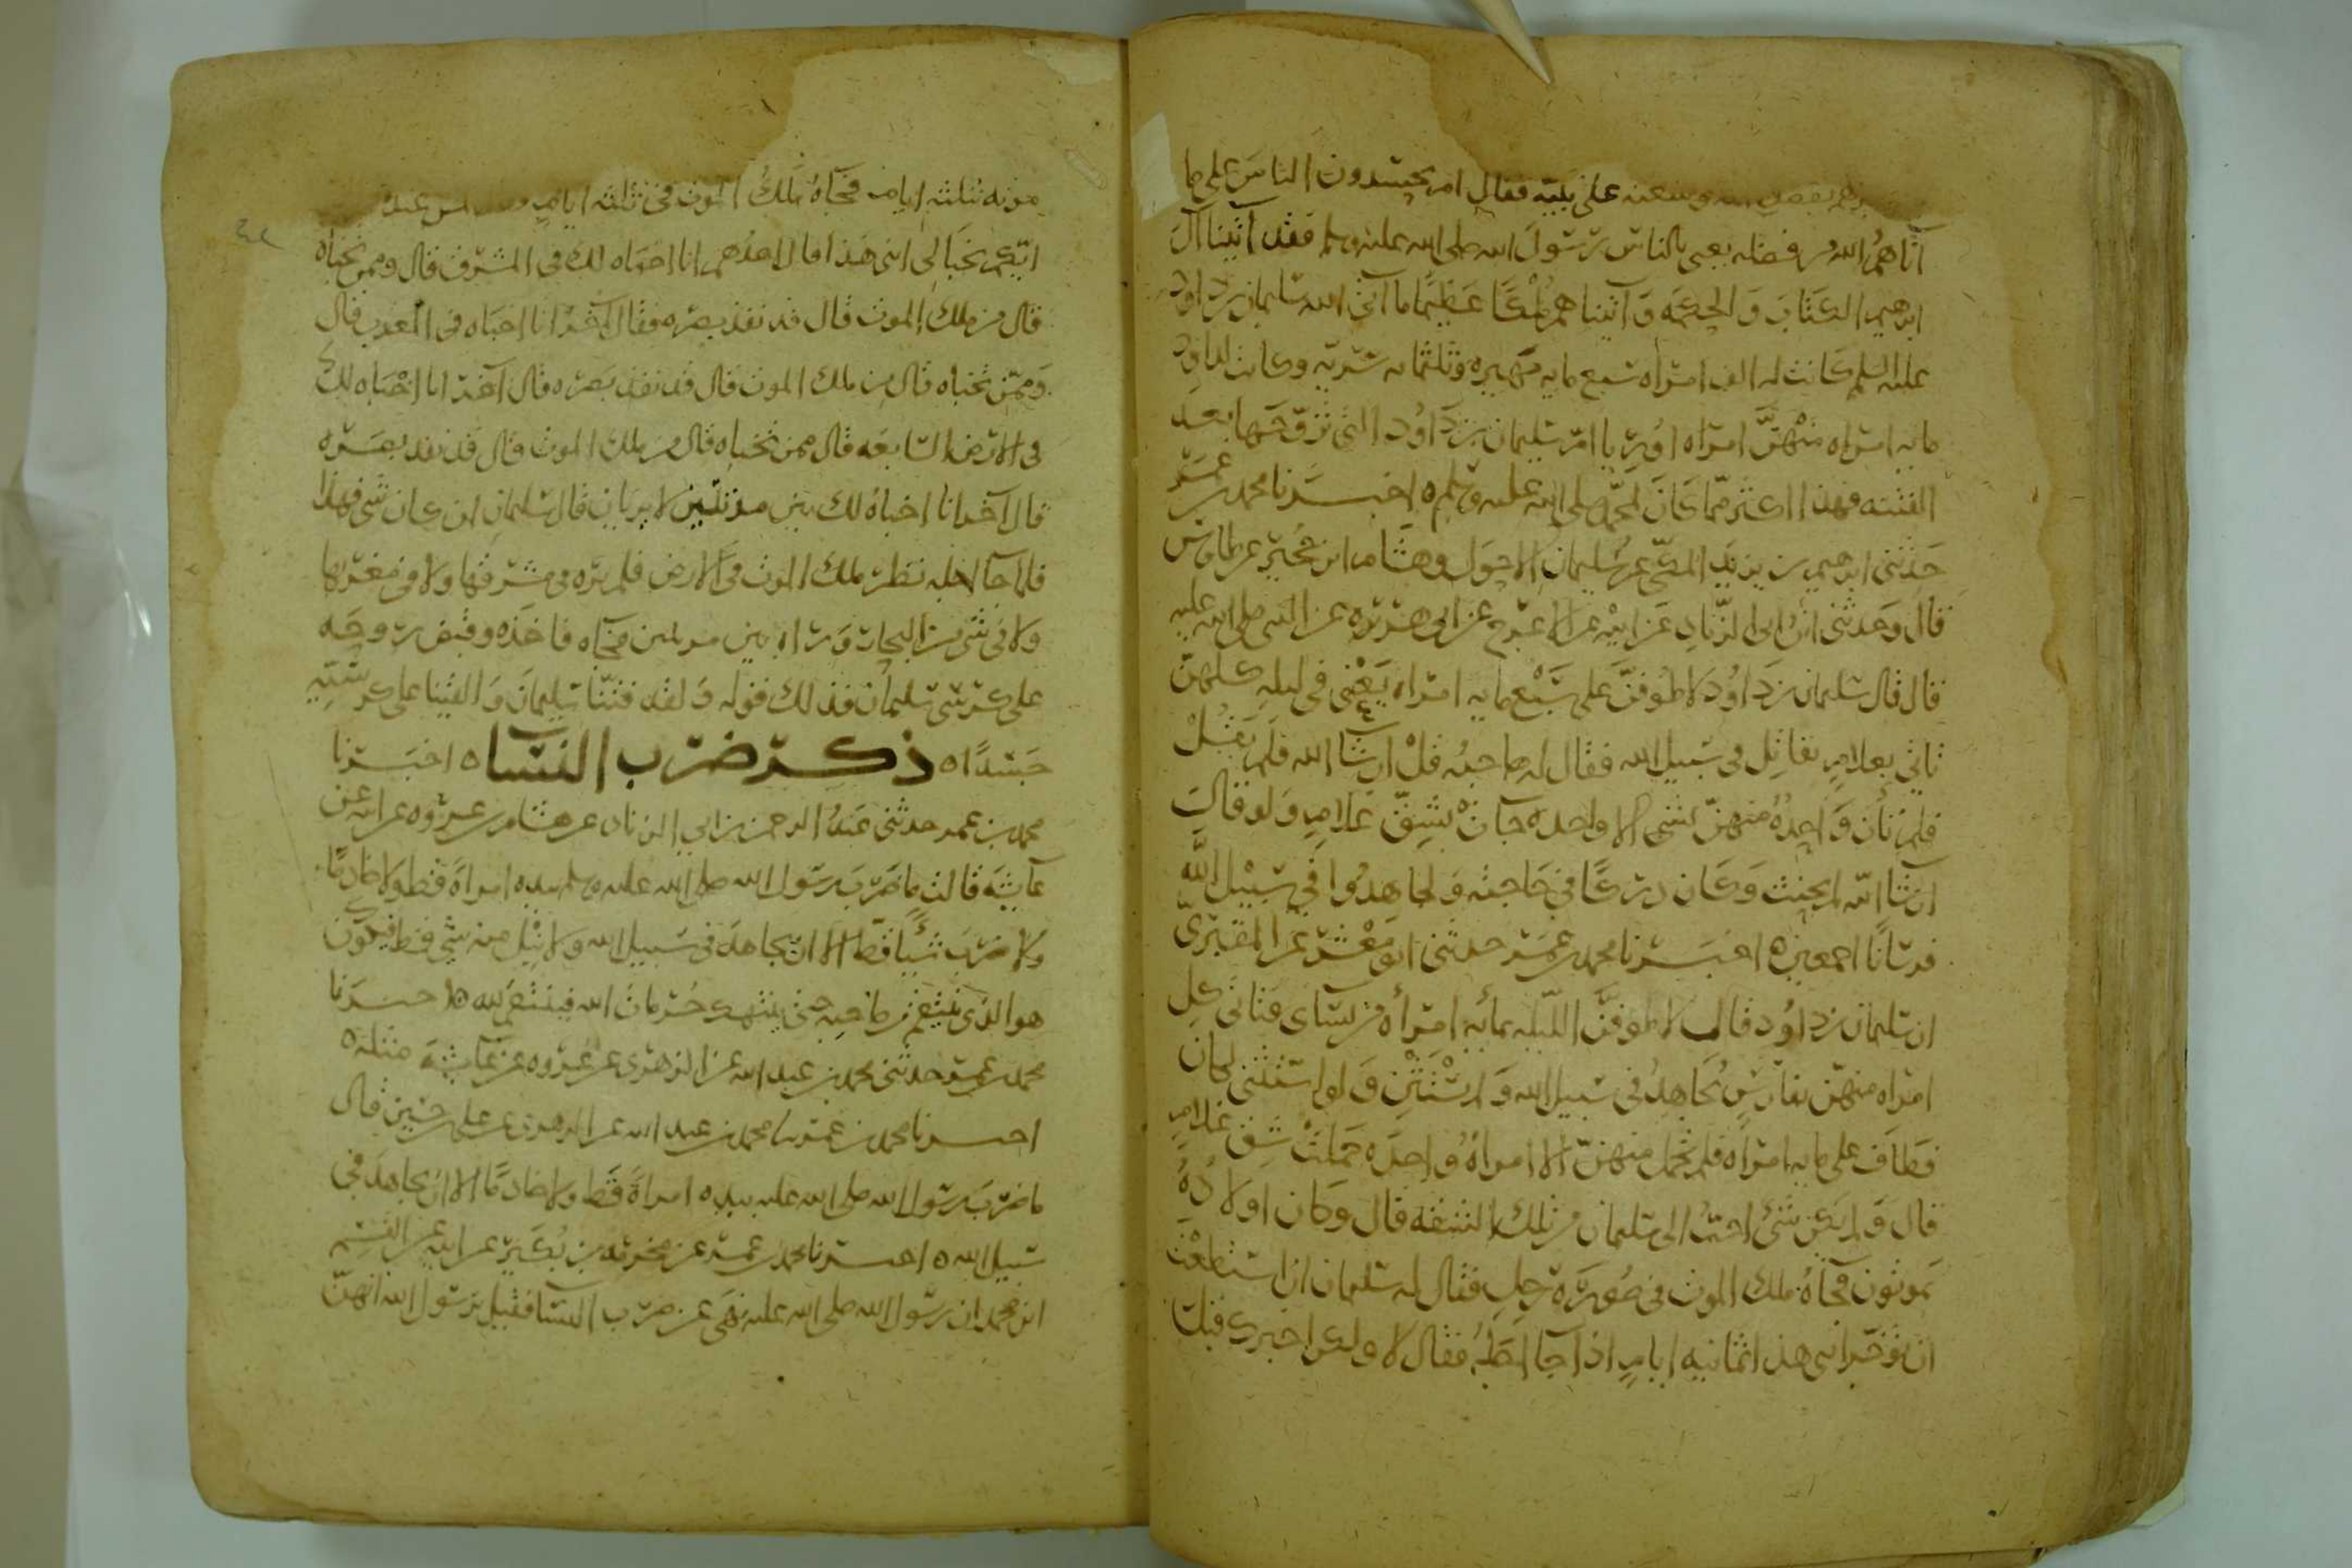 وسعته على نبيه فقال ام يحسدون الناس على ما
آتاهم الله من فضله يعني بالناس رسول الله صلى الله عليه وسلم فقد آتينا آل
ابرهيم الكتاب والحكمه وآتيناهم ملكًا عظيمًا ما آتى الله سليمان بن داود
عليه السلم كانت له الف امراه سبع مايه مهيره وثلثمايه سريّه وكانت لداود
مايه امراه منهنَّ امراه اوريا امّ سليمان بن داوُد التي تزوّجها بعد
الفتنه فهذا اكثر ممّا كان لمحمّد صلى الله عليه وسلم ه اخبرنا محمد بن عمر
حدّثني ابرهيم بن يزيد المكّي عن سليمان الاحول وهشام ابن حُجَير عن طاوس
قال وحدثني ابن ابي الزّناد عن ابيه عن الاعرج عن ابي هريره عن النبي صلى الله عليه
قال قال سليمان بن داوُد لاطوفنّ على سبع مايه امراه يعني في ليله كلهنّ
تاتي بغلامٍ يقاتل في سبيل الله فقال له صاحبه قُلْ ان شآ الله فلم يقُلْ
فلم تأت واحدةٌ منهنّ بشي الا واحده جآت بشِقّ غلامٍ ولو قال
ان شآ الله لم يحنث وكان دركًا في حاجته ولجاهدُوا في سبيل الله
فرسانًا اجمعين ه اخبرنا محمد بن عمر حدثني ابو معشر عن المقبريّ
ان سليمان بن داوُد قال لاطوفنّ الليله بمايه امرأه من نساى فتاتي كل
امراه منهنّ بفارسٍ يُجاهدُ في سبيل الله ولم يستثن ولو استثنى لكان
فطاف على مايه امراه فلم تحمل منهنّ الا امراةٌ واحده حملت شِق غلامٍ
قال ولم يكن شئ احبّ الى سليمان من تلك الشقه قال وكان اولادُهُ
يموتون فجآهُ ملك الموت في صُورة رجلٍ فقال له سليمان ان استطعت
ان تؤخّر ابني هذا ثمانيه ايامٍ اذا جآ اجلهُ فقال لا ولكن اخبرك قبل
موته بثلثه ايامٍ فجآهُ ملكُ الموت في ثلثه ايامٍ عنده
ايّكم يخبا لي ابني هذا قال احدهم انا اخباه لك في المشرق قال وممن تخباه
قال من ملك الموت قال قد نفذ بصره فقال آخرُ انا اخباه في المغرب قال
وممّن تخباه قال من ملك الموت قال قد نفذ بصره قال آخر انا اخباه لك
في الارض السابعه قال ممن تخباه قال من ملك الموت قال قد نفذ بصره
قال آخر انا اخباهُ لك بين مزنتين لا تريان قال سليمان ان كان شي فهذا
فلما جآ اجله نظر ملك الموت في الارض فلم يره في مشرقها ولا في مغربها
ولا في شي من البحار ورآه بين مزنتين فجآه فاخذه وقبض روحه
على كرسي سليمان فذلك قوله ولقد فتنّا سليمان والقينا على كرسيّه
جسدًا ه ذكر ضرب النسآ ه اخبرنا
محمد بن عمر حدثني عبدُ الرحمن بن ابي الزناد عن هشام بن عروه عن ابيه عن
عآيشه قالت ما ضرب رسول الله صلى الله عليه وسلم بيده امراةً قط ولا خادمًا
ولا ضرب شيًا قطّ الا ان يجاهد في سبيل الله ولا نِيْل منه شي قط فيكون
هو الذي ينتقم من صاحبه حتى ينتهك حُرمات الله فينتقم لله ه اخبرنا
محمد بن عمر حدثني محمد بن عبد الله عن الزهري عن عُروه عن عآيشه مثله ه
اخبرنا محمد بن عمر نا محمد بن عبد الله عن الزهري عن علي بن حسين قال
ما ضرب رسول الله صلى الله عليه بيده امراةً قط ولا خادمًا الا ان يجاهد في
سبيل الله ه اخبرنا محمد بن عمر عن مخرمه بن بُكير عن ابيه عن القسم
ابن محمد ان رسول الله صلى الله عليه نهى عن ضرب النسآ فقيل يا رسول الله انهنّ